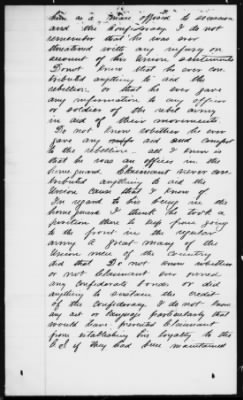 him as a Union man opposed to secession
and the Confederacy. I do not
remember that he was ever
threatened with any injury on
account of his Union sentiments
Do not know that he ever con-
tributed anything to aid the
rebellion, or that he ever gave
any information to any officer
or soldier of the rebel army
in aid of their movements.
Do not know whether he ever
gave any aid and comfort
to the rebellion. All I know is
that he was an officer in the
home guard. Claimant never con-
tributed anything to aid the
Union cause that I know of
In regard to his being in the
home guard I think he took a
position there to keep from going
to the front in the regular
army A great many of the
Union men of the country
did that Do not know whether
or not Claimant ever owned
any confederate bonds or did
anything to sustain the credit
of the confederacy. I do not know
any act or language particularly that
would have prevented Claimant
from establishing his loyalty to the
C.S. if they had been maintained